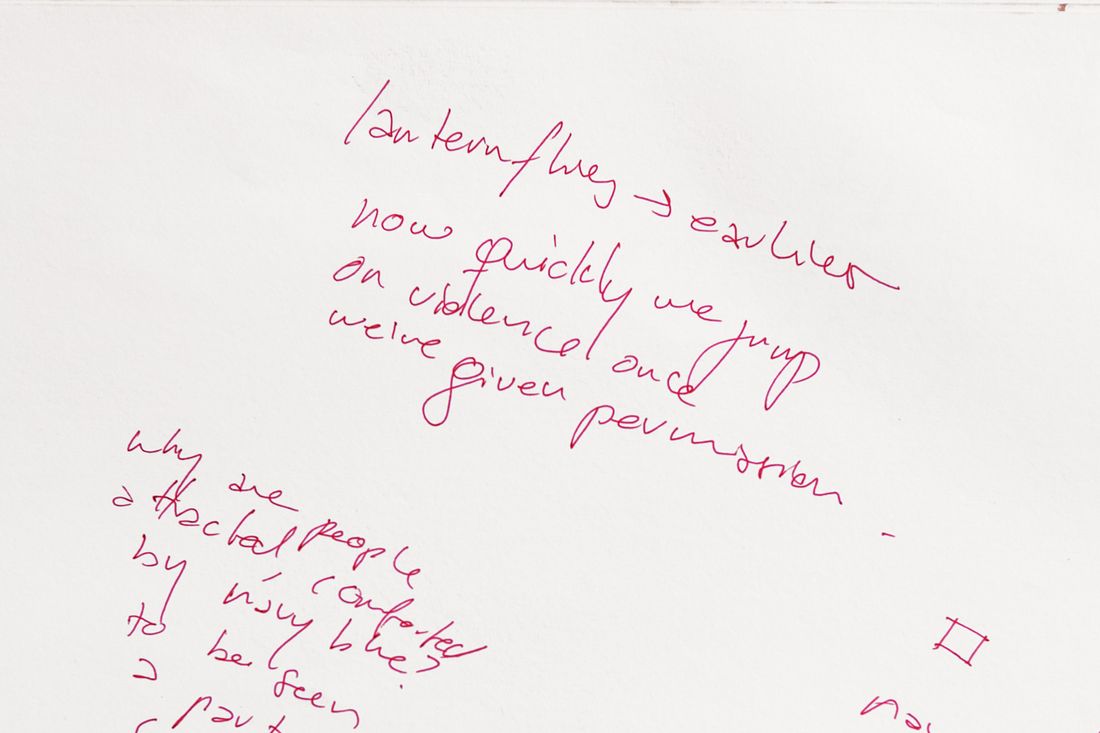 lanternflies → earlier
how quickly we jump
on violence once
we're given permission
why are people
attracted / comforted
by navy blue?
to be seen
a part